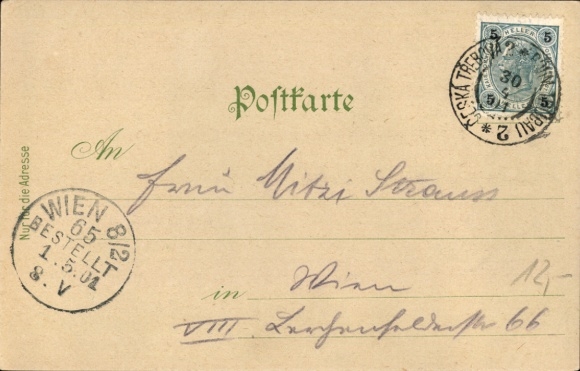 5 HELLER 5
5 HELLER 5
ČESKÁ TŘEBOVÁ 2
30
4
2
Postkarte
Nur für die Adresse
An
Frau Mitzi Strauss
WIEN 8/2
65
BESTELLT
1.5.01
8.V
in Wien
12,-
VIII. Lerchenfelderstr 66